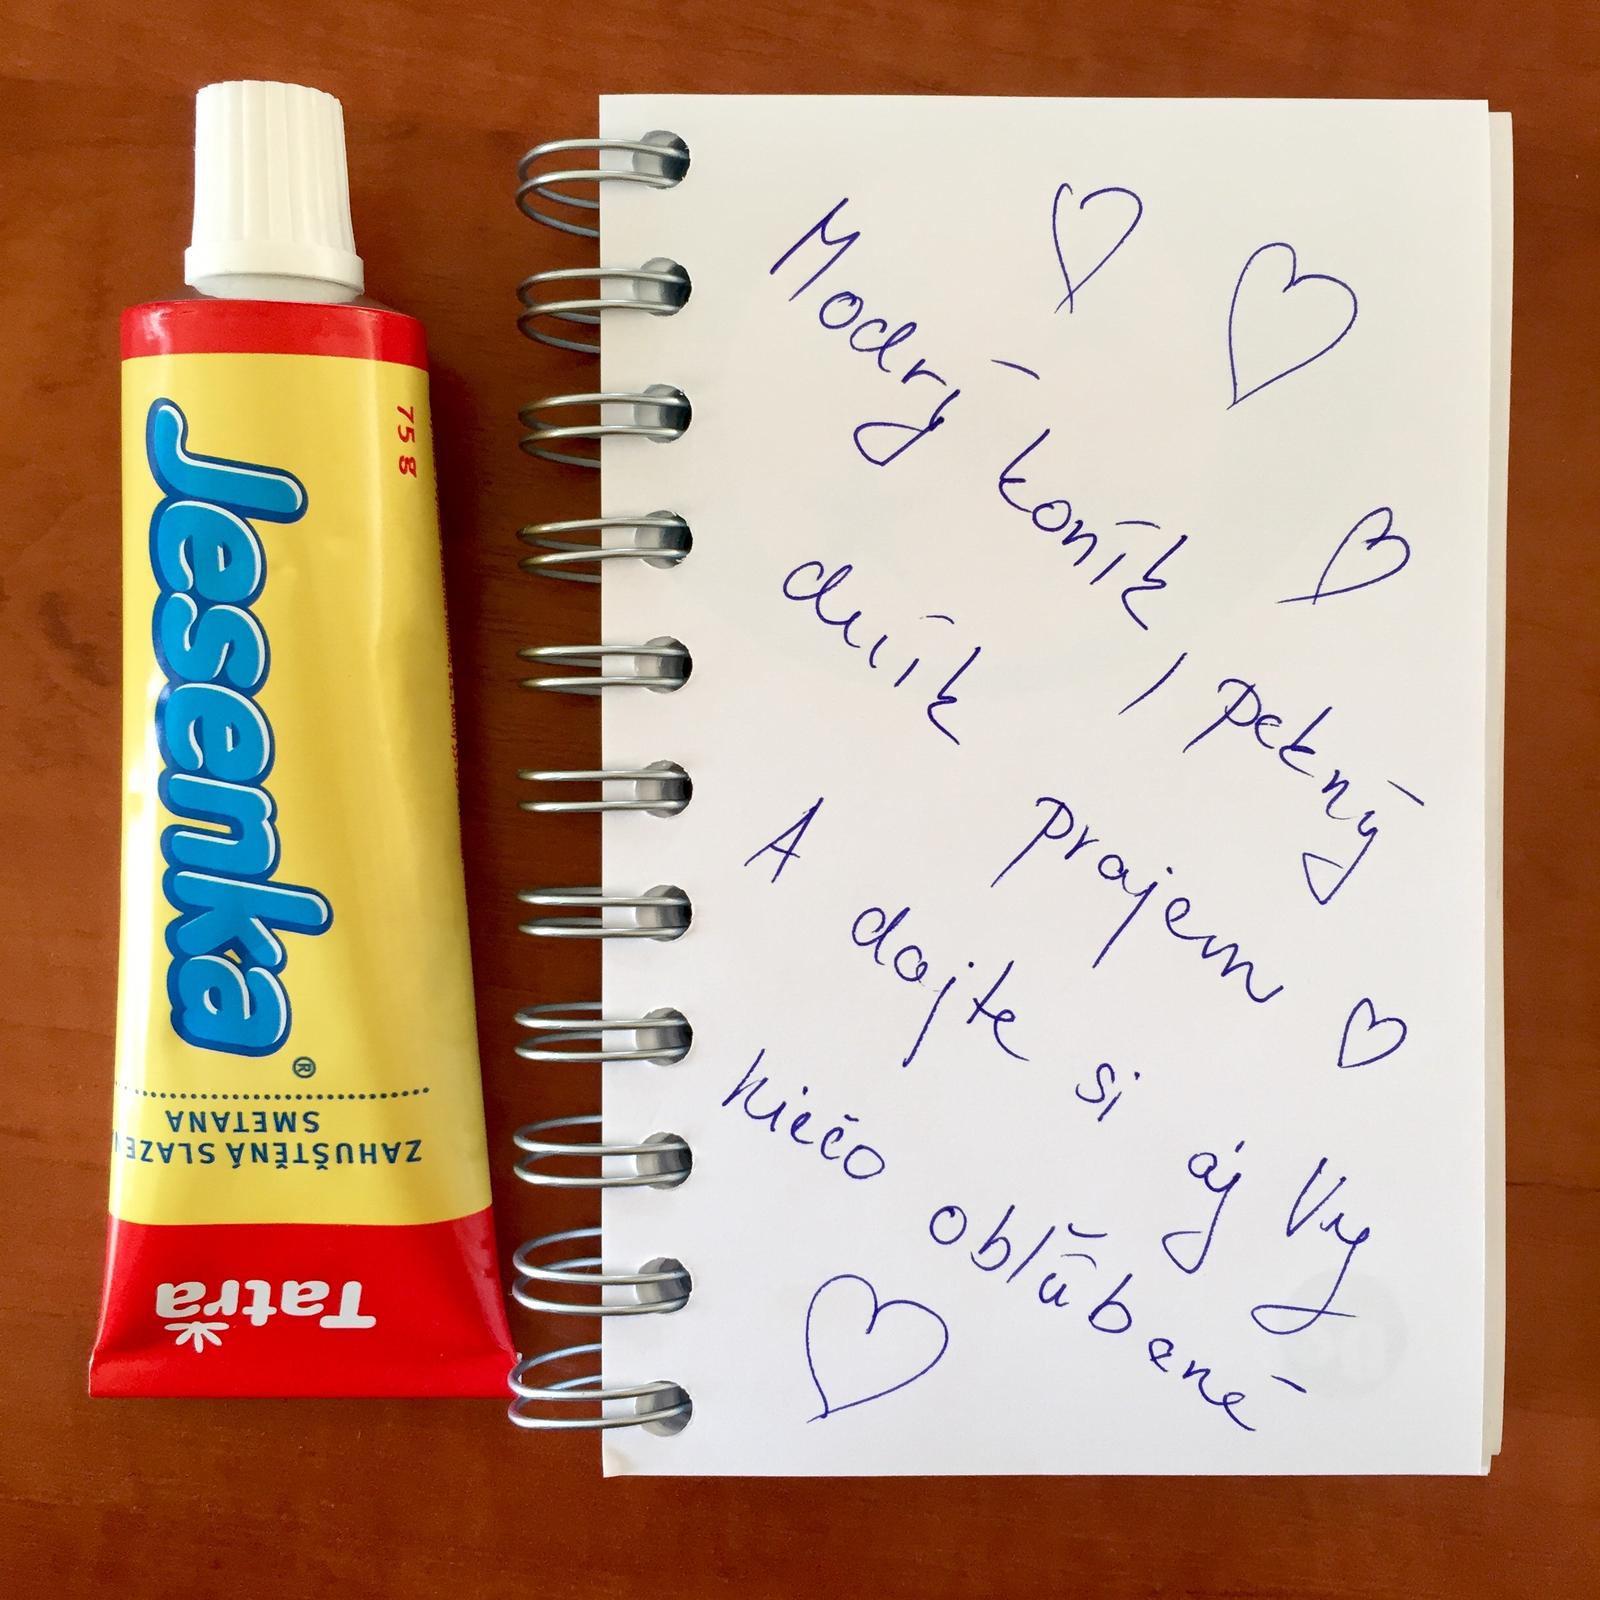 75 g
Jesenka®
ZAHUŠTĚNÁ SLAZEN
SMETANA
Tatra
Modrý koník, pekný
dník prajem
A dajte si aj Vy
niečo obľúbené